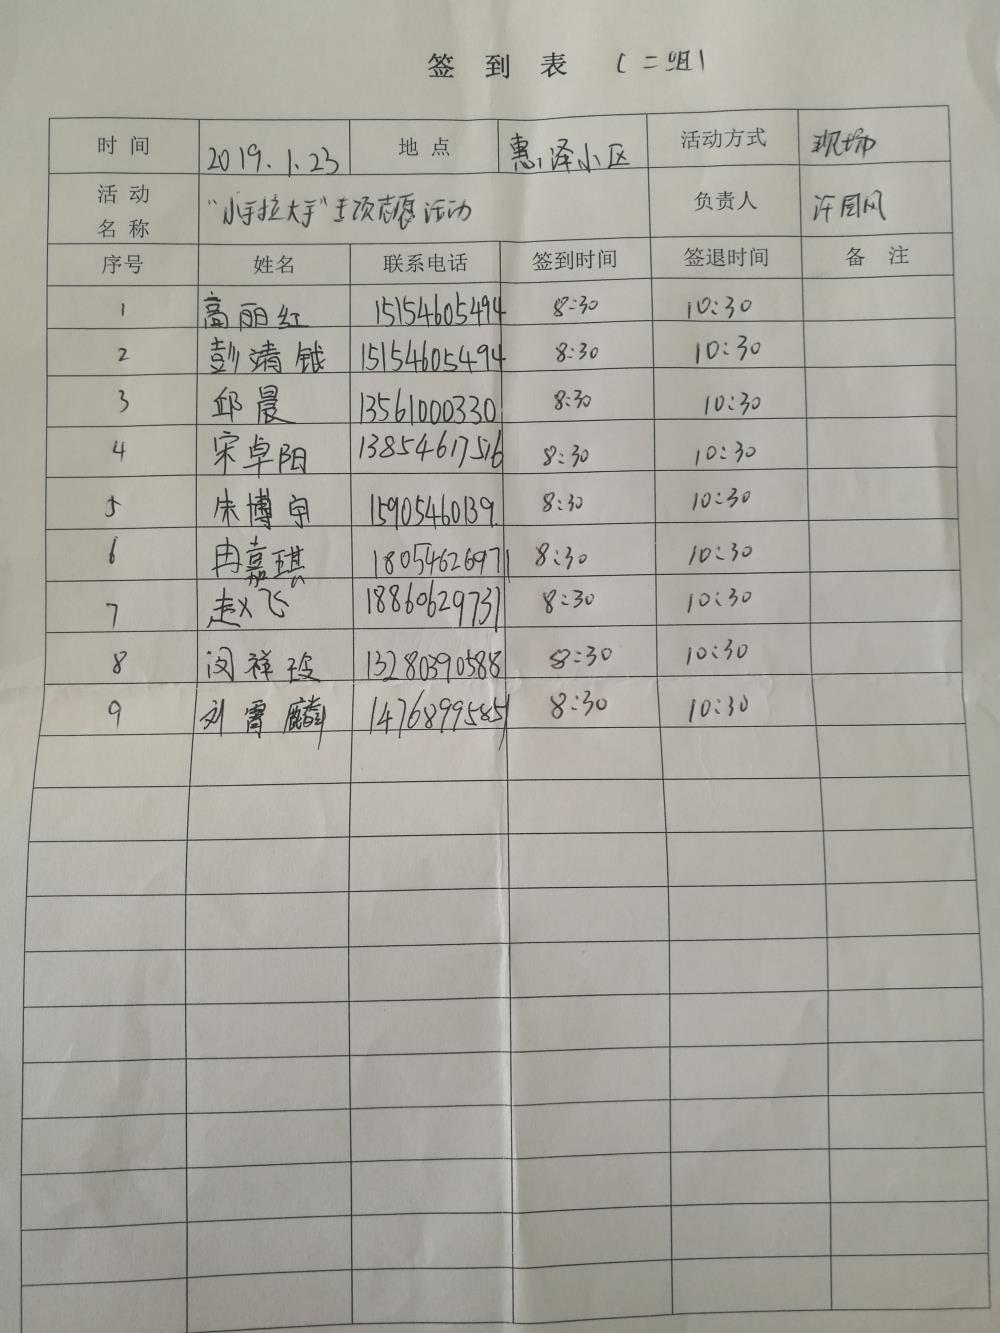 签 到 表 (二组)
时 间 2019.1.23 地 点 惠泽小区 活动方式 现场
活 动 名 称 "小手拉大手"专项志愿活动 负责人 许国风
序号 姓名 联系电话 签到时间 签退时间 备 注
1 高丽红 15154605494 8:30 10:30
2 彭靖钺 15154605494 8:30 10:30
3 邱晨 13561000330 8:30 10:30
4 宋卓阳 13854617516 8:30 10:30
5 朱博宇 15905460139 8:30 10:30
6 冉嘉琪 18054626971 8:30 10:30
7 赵飞 18860629731 8:30 10:30
8 闵祥 13280390588 8:30 10:30
9 刘霄麟 14768995851 8:30 10:30